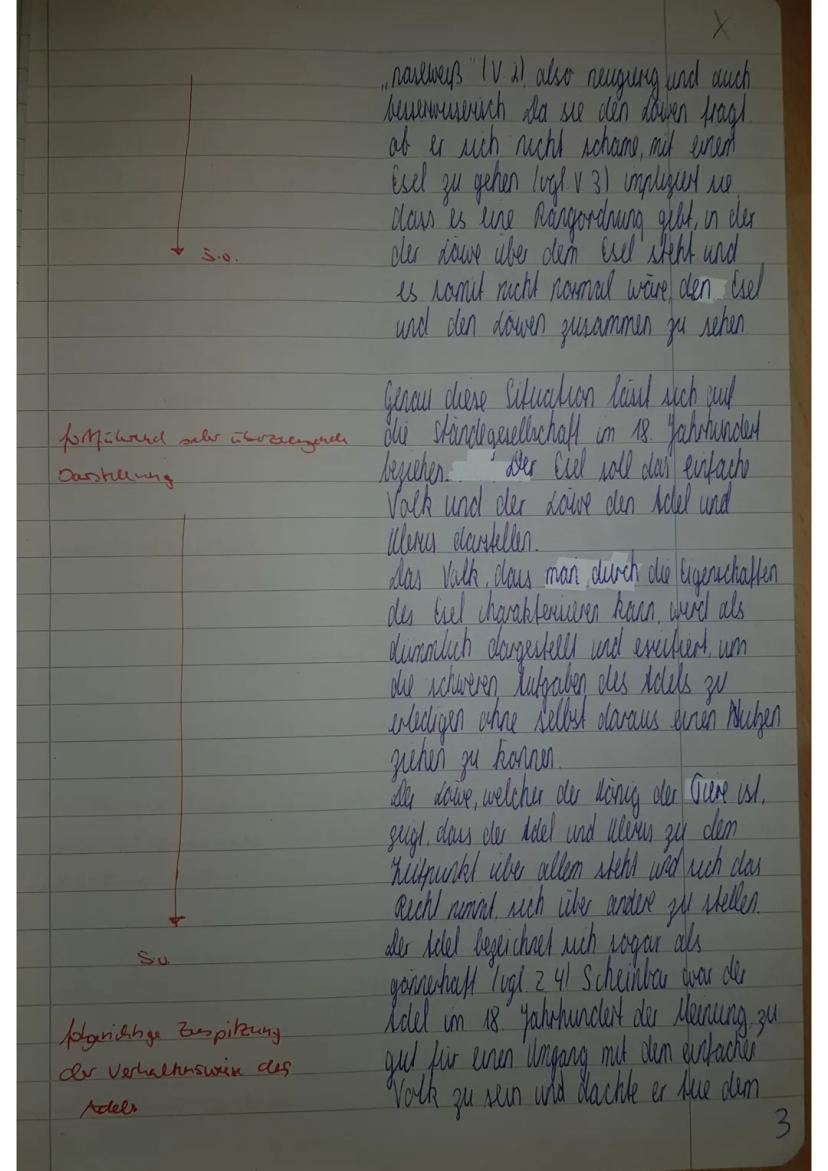 X
„naseweiß" (V. 2), also neugierig und auch
besserwisserisch. Da sie den Löwen fragt
ob er sich nicht schäme, mit einem
Esel zu gehen (vgl. V. 3) impliziert sie,
dass es eine Rangordnung gibt, in der
der Löwe über dem Esel steht und
s.o.
es somit nicht normal wäre, den Esel
und den Löwen zusammen zu sehen
Genau diese Situation lässt sich auf
die Ständegesellschaft im 18. Jahrhundert
fortführend sehr überzeugende
Darstellung
beziehen. Der Esel soll das einfache
Volk und der Löwe den Adel und
Klerus darstellen.
Das Volk, dass man durch die Eigenschaften
des Esel charakterisieren kann, wird als
dümmlich dargestellt und existiert, um
die schweren Aufgaben des Adels zu
erledigen ohne selbst daraus einen Nutzen
ziehen zu können.
Der Löwe, welcher der König der Tiere ist,
zeigt, dass der Adel und Klerus zu dem
Zeitpunkt über allem steht und sich das
Recht nimmt, sich über andere zu stellen.
Der Adel bezeichnet sich sogar als
s.o.
gönnerhaft (vgl. Z. 4) Scheinbar war der
Adel im 18. Jahrhundert der Meinung, zu
gut für einen Umgang mit dem einfachen
Volk zu sein und dachte er tue dem
folgerichtige Zuspitzung
der Verhaltensweise des
Adels
3